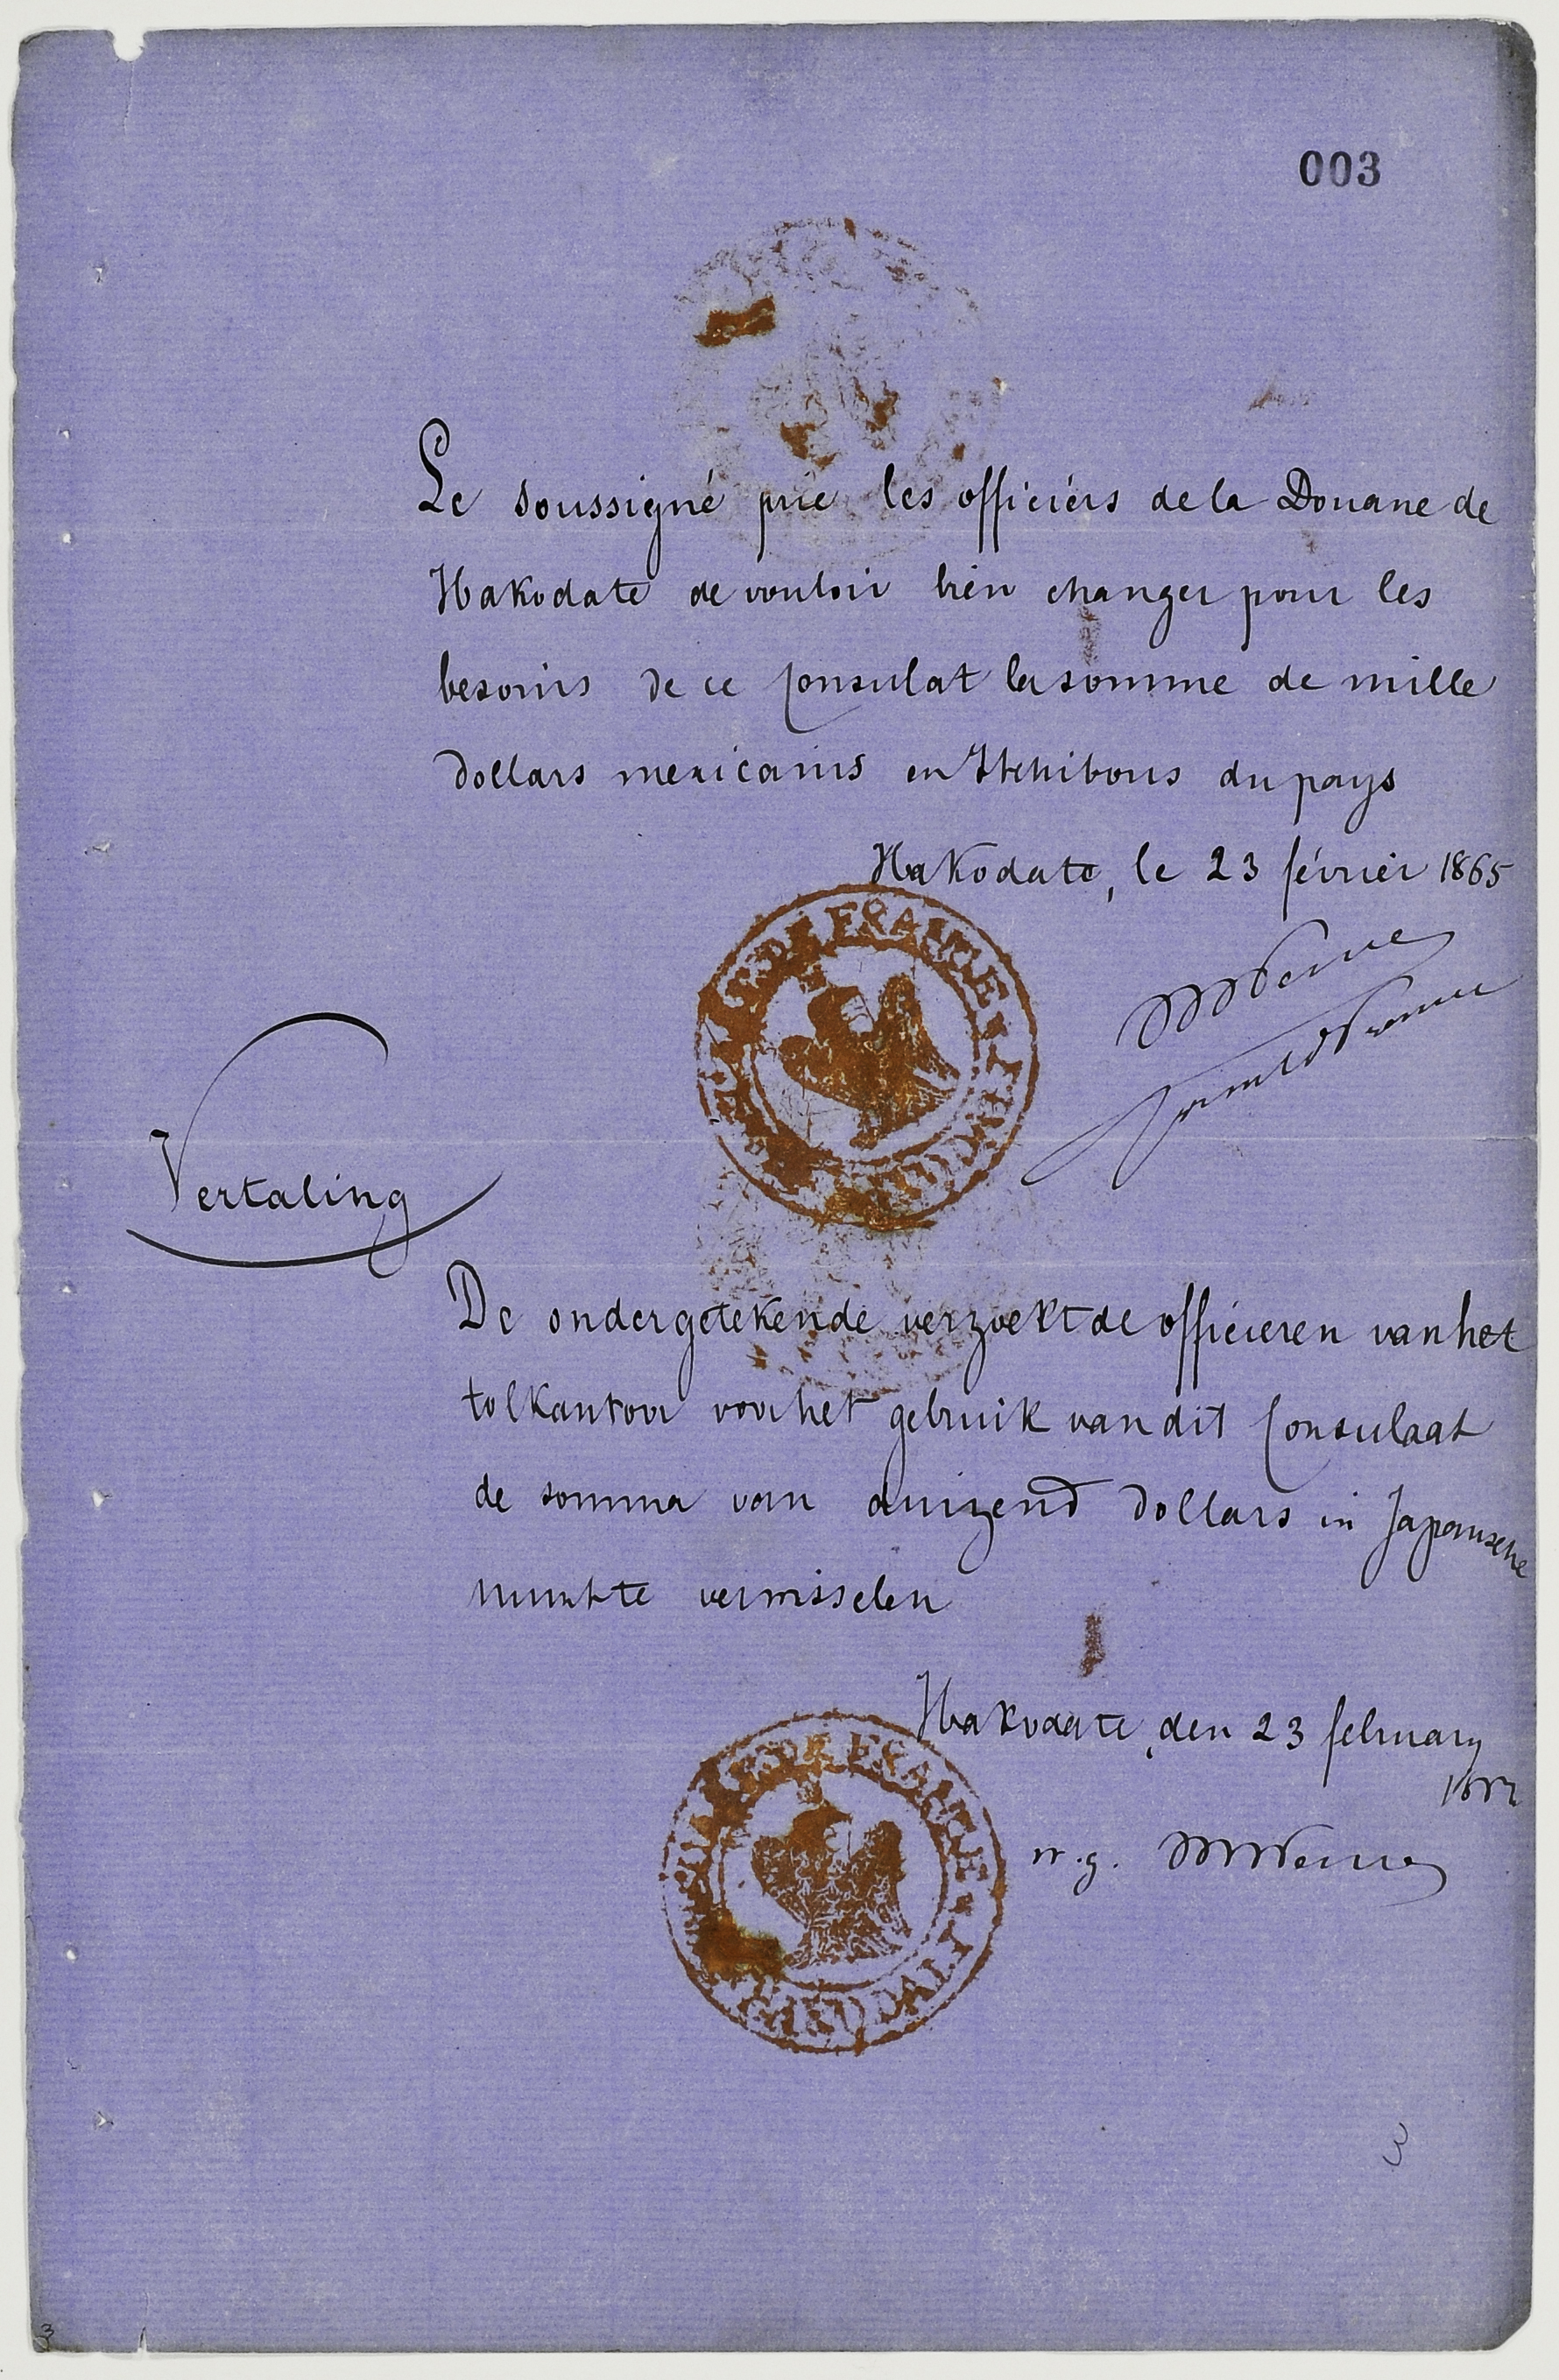 003
Le soussigné prie les officiers de la Douane de
Hakodate de vouloir bien changer pour les
besoins de ce Consulat la somme de mille
dollars mexicains en Itchibous du pays
Hakodate, le 23 février 1865
DE FRANCE
Vertaling
De ondergetekende verzoekt de officieren van het
tolkantoor voor het gebruik van dit Consulaat
de somma van duizend dollars in Japansche
munt te verwisselen
Hakodate, den 23 february
w.g.
DE FRANCE
3
3